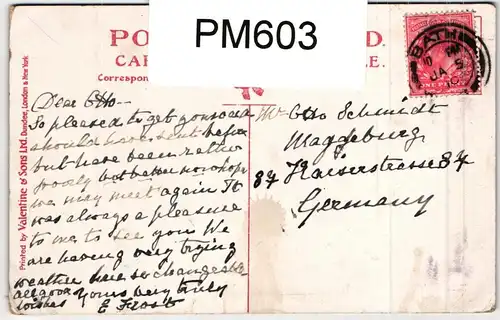 PM603
PO
D.
CAR
LE.
Correspon
Printed by Valentine & Sons Ltd. Dundee, London & New York
BATH
PM
JA 5
ONE PENNY
Dear Otto—
So pleased to get your card
should have sent before
but have been rather
poorly but better now hope
we may meet again It
was always a pleasure
to me to see you We
are having very trying
weather here so changeable
all good yours very truly
wishes E Frost
Mr Otto Schmidt
Magdeburg
84 Kaiserstrasse 84
Germany